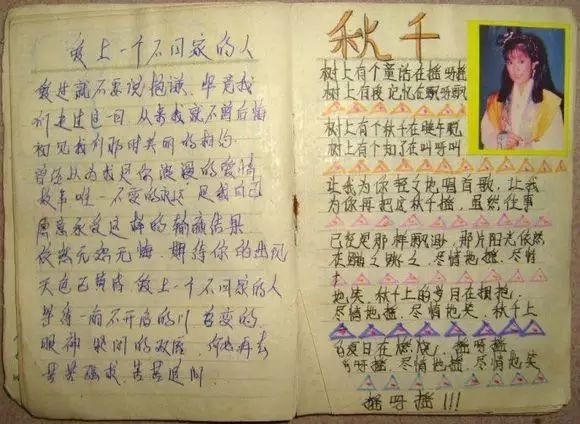 爱上一个不回家的人
爱过就不要说抱谦，毕竟我
们走过这一回，从来我就不曾后悔
初见我们那时共同的相约
曾经以为我是你浪漫的爱情
故事唯一不变的永远 是我自己
愿意承受这样的输赢结果
依然无怨无悔，期待你的出现
天色已黄昏 爱上一个不回家的人
等待一扇不开启的门 善变的
眼神 紧闭的双唇 何必再去
苦苦强求，苦苦追问。
秋千
树上有个童话在摇呀摇
树上有段记忆在飘呀飘
树上有个秋千在睡午觉
树上有个知了在叫呀叫
让我为你轻轻地唱首歌，让我
为你再把这秋千摇，虽然往事
已经是那样飘渺，那片阳光依然
在蹦之跳之，尽情地摇，尽情
地笑，秋千上的岁月在拥抱，
尽情地摇，尽情地笑，秋千上
的夏日在燃烧，摇呀摇
摇呀摇，尽情地摇，尽情地笑
摇呀摇!!!